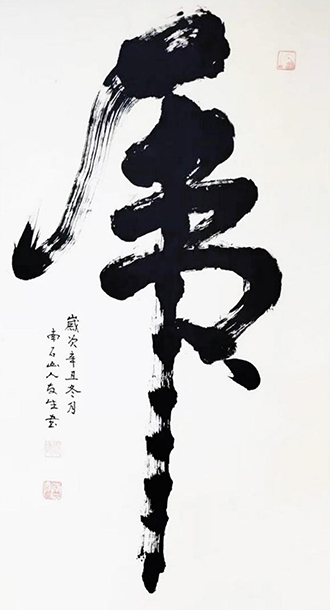 虎
歲次辛丑冬月
南石山人友生書